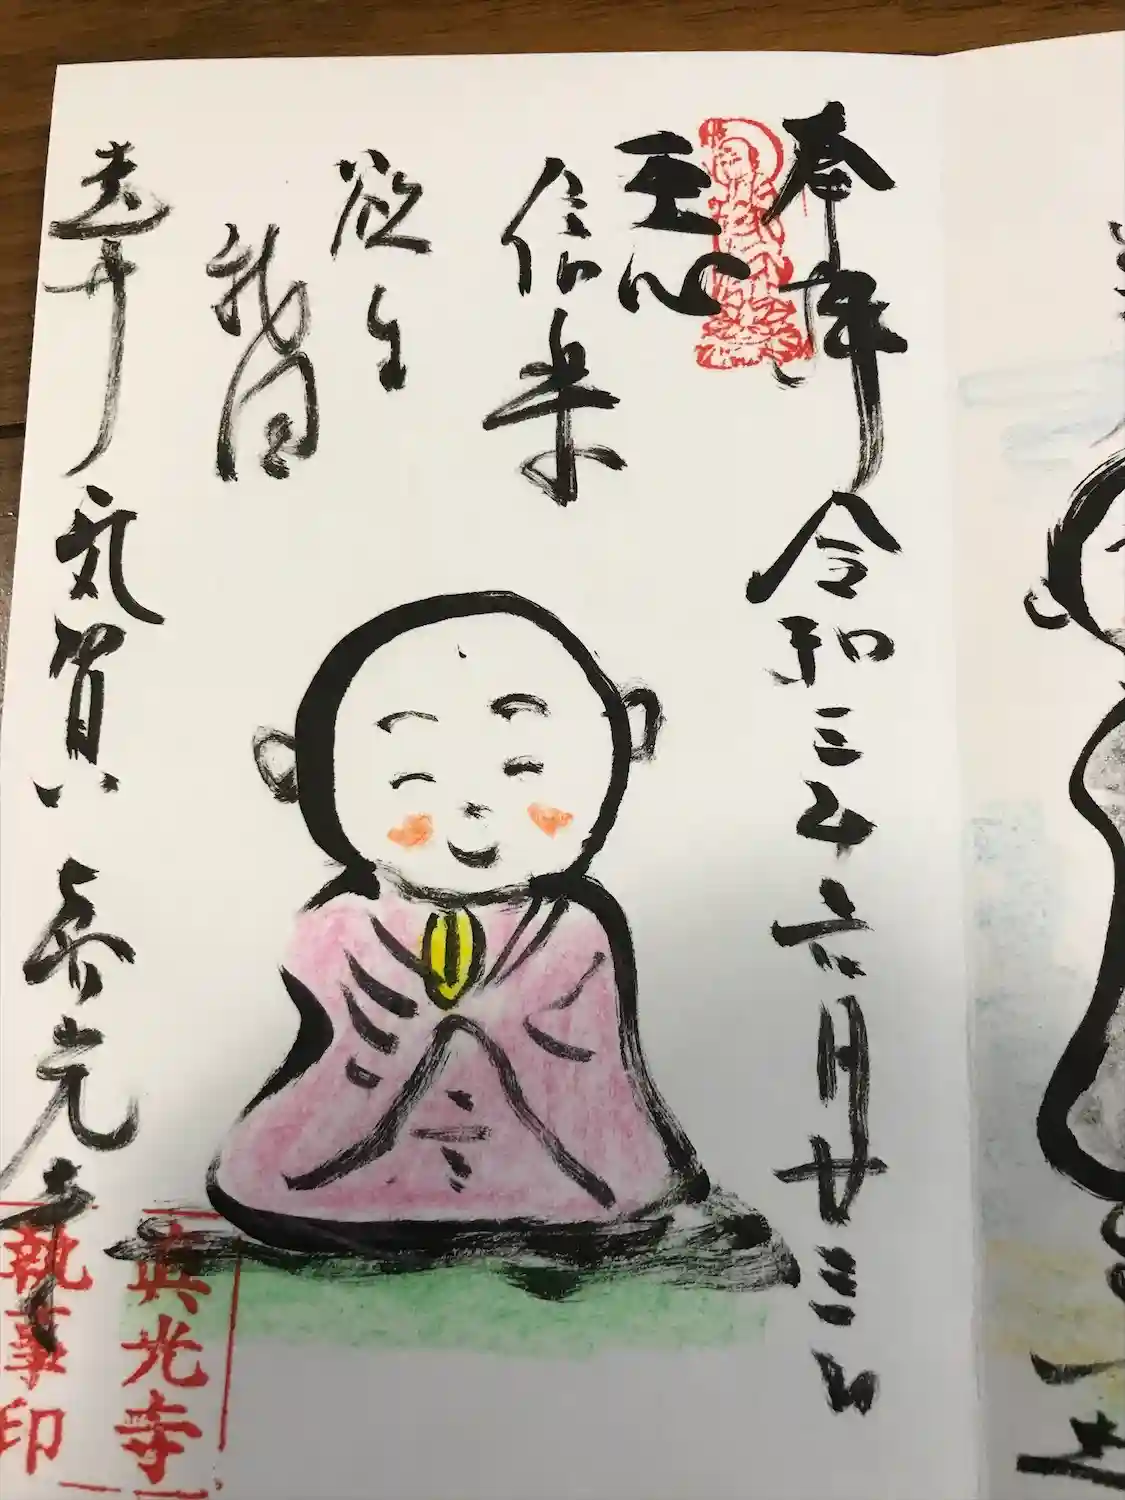 奉拝 令和三年六月廿三日
至心
信楽
欲生
我国
遠州 気賀 真光寺
眞光寺
執事印